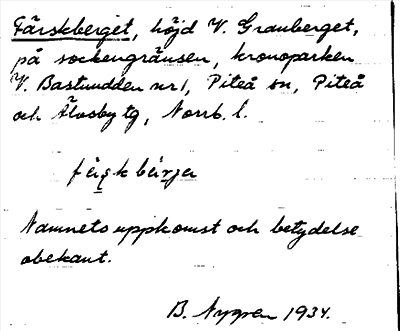 Färskberget, höjd V. Granberget,
på sockengränsen, kronoparken
V. Bastuudden nr 1, Piteå sn, Piteå
och Älvsby tg, Norrb. l.
fäşk bärja
Namnets uppkomst och betydelse
obekant.
B. Nygren 1934.